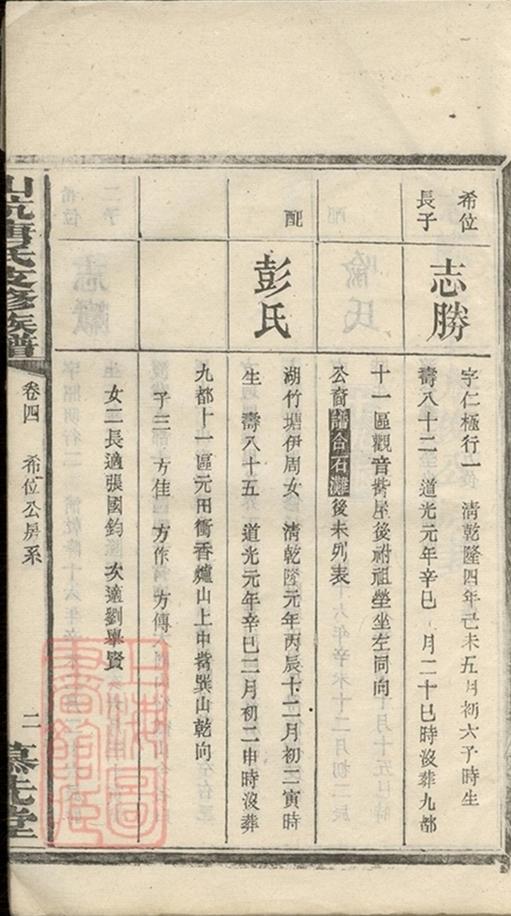 希位
長子
志勝
字仁極行一　清乾隆四年己未五月初六子時生
壽八十二　道光元年辛巳　月二十巳時沒葬九都
十一區觀音嘴屋後祔祖塋坐左同向
公裔譜合石灘後未列表
配
彭氏
湖竹塘伊周女　清乾隆元年丙辰十二月初二寅時
生　壽八十五　道光元年辛巳二月初二申時沒葬
九都十一區元田衝香爐山上中嘴巽山乾向
子三　方佳　方作　方傳
女二長適張國鈞　次適劉舉賢
山坑唐氏支修族譜
卷四　希位公房系
二
慕先堂